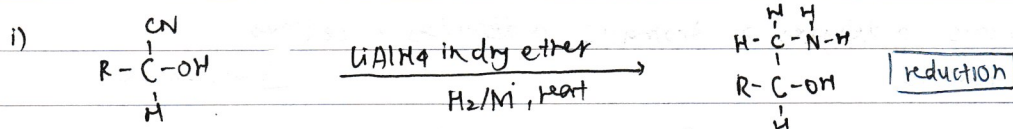 i)
CN
R-C-OH
H
LiAlH4 in dry ether
H2/Ni, heat
H H
H-C-N-H
R-C-OH
H
reduction